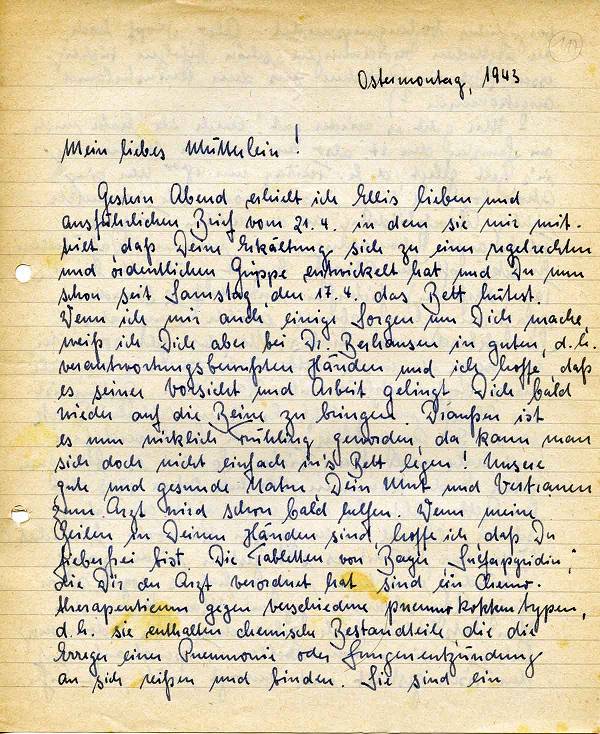 Ostermontag, 1943
Mein liebes Mütterlein!
Gestern Abend erhielt ich Ellis lieben und
ausführlichen Brief vom 21.4. in dem sie mir mit-
teilt, daß Deine Erkältung sich zu einer regelrechten
und ordentlichen Grippe entwickelt hat und Du nun
schon seit Samstag, den 17.4. das Bett hütest.
Wenn ich mir auch einige Sorgen um Dich mache,
weiß ich Dich aber bei Dr. in guten, d.h.
verantwortungsbewußten Händen und ich hoffe, daß
es seiner Vorsicht und Arbeit gelingt Dich bald
wieder auf die Beine zu bringen. Draußen ist
es nun wirklich Frühling geworden, da kann man
sich doch nicht einfach in's Bett legen! Unsere
gute und gesunde Natur, Dein Mut und Vertrauen
zum Arzt wird schon bald helfen. Wenn meine
Zeilen in Deinen Händen sind, hoffe ich daß Du
fieberfrei bist. Die Tabletten von Bayer, "
die Dir der Arzt verordnet hat sind ein Chemo-
therapeuticum gegen verschiedene pneumokokkentypen,
d.h. sie enthalten chemische Bestandteile die die
Erreger einer Pneumonie oder Lungenentzündung
an sich reißen und binden. Sie sind ein